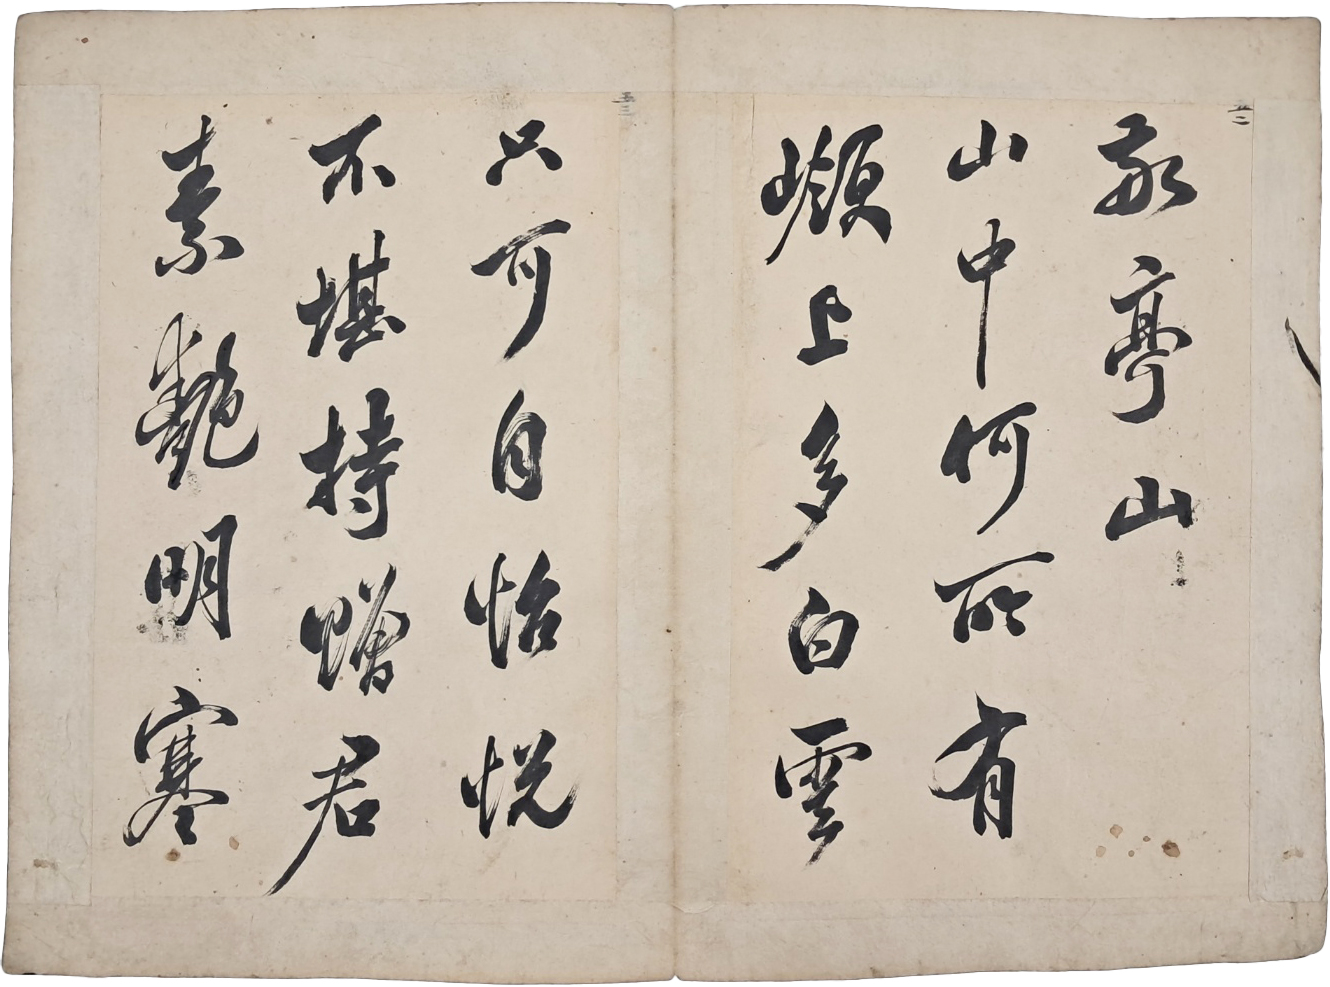 五二
敬亭山
山中何所有
嶺上多白雲
五三
只可自怡悅
不堪持贈君
素艷明寒